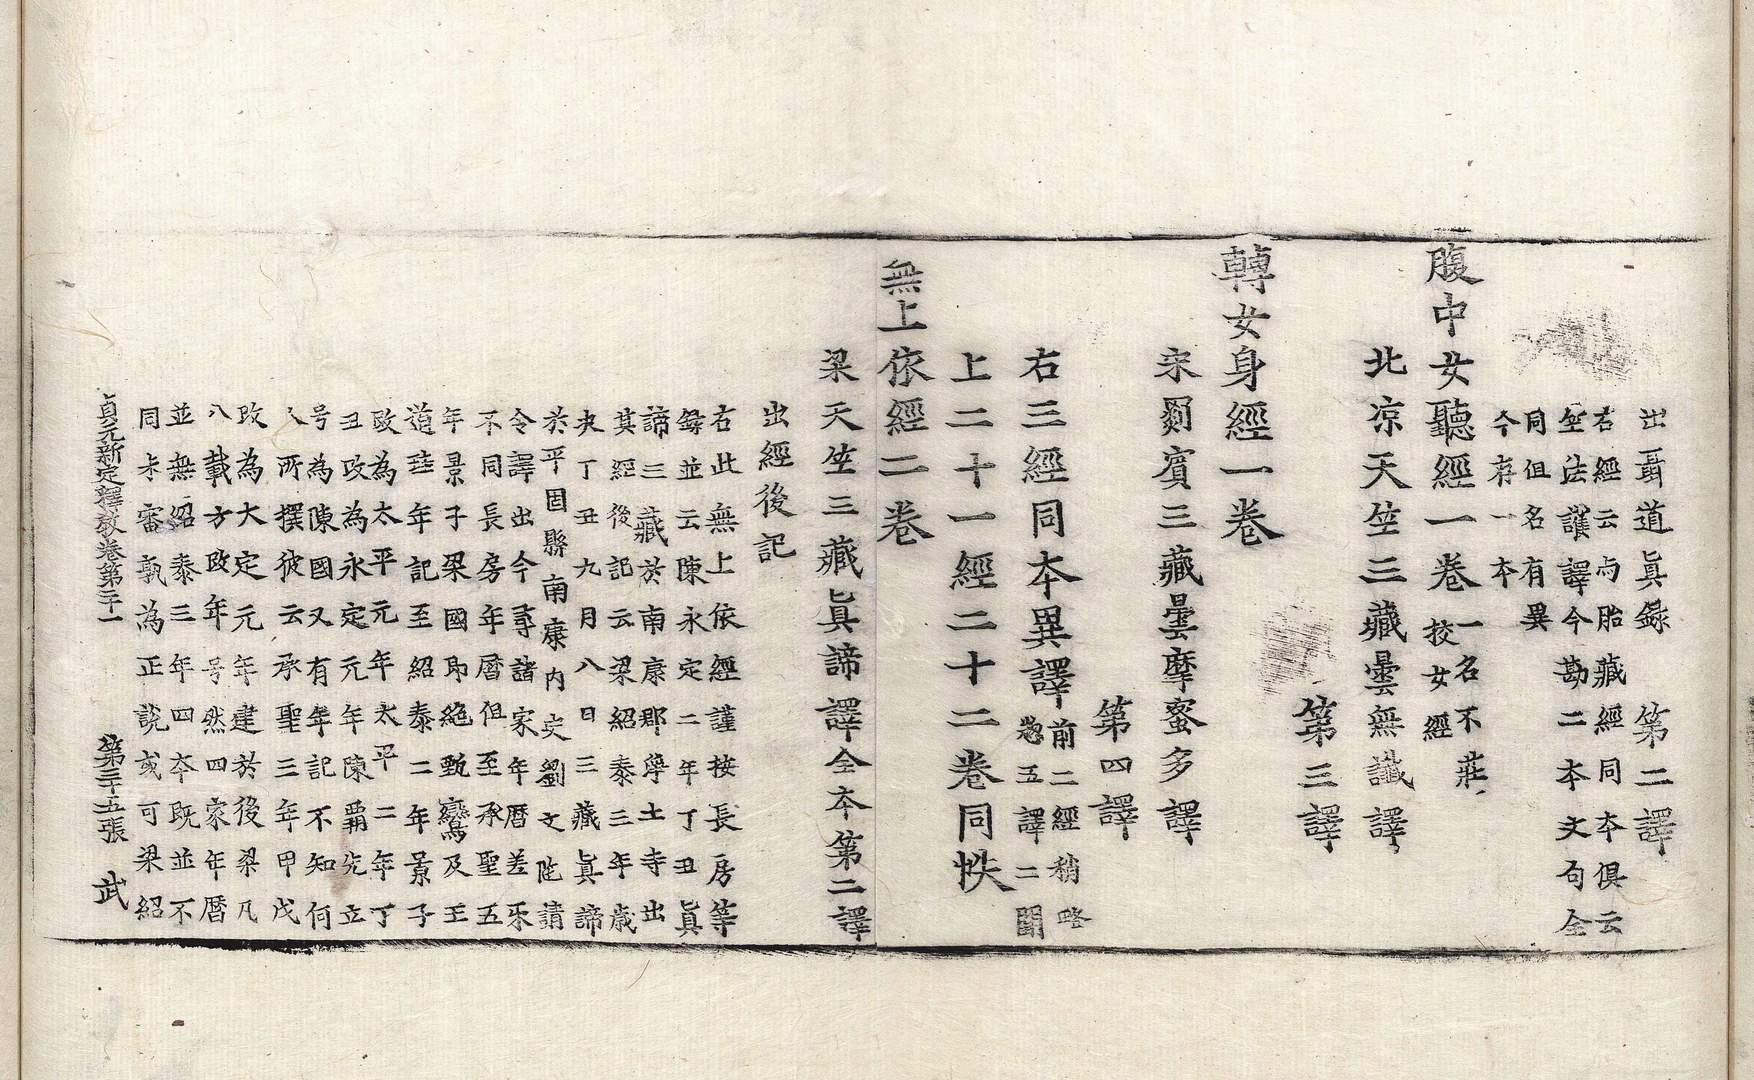 出聶道眞録　第二譯
右經云與胎藏經同本俱云
竺法護譯今勘二本文句全
同但名有異
今存一本
腹中女聽經一卷一名不莊
校女經
北凉天竺三藏曇無讖譯
第三譯
轉女身經一卷
宋罽賓三藏曇摩蜜多譯
第四譯
右三經同本異譯前二經稍略
惣五譯二闕
上二十一經二十二卷同帙
無上依經二卷
梁天竺三藏眞諦譯全本第二譯
出經後記
右此無上依經謹按長房等
録並云陳永定二年丁丑眞
諦三藏於南康郡寧土寺出
其經後記云梁紹泰三年歲
次丁丑九月八日三藏眞諦
於平固縣南康内史劉文陁請
令譯出今尋諸家年曆差互
不同長房年曆但至承聖五
年景子梁國即絶甄鸞及王
道珪年記至紹泰二年景子
改為太平元年太平二年丁
丑改為永定元年陳覇先立
号為陳國又有年記不知何
人所撰彼云承聖三年甲戌
改為大定元年建於後梁凡
八載方改年号然四家年曆
並無紹泰三年四本既並不
同未審孰為正說或可梁紹
貞元新定釋教卷第三十一　第二十五張　武